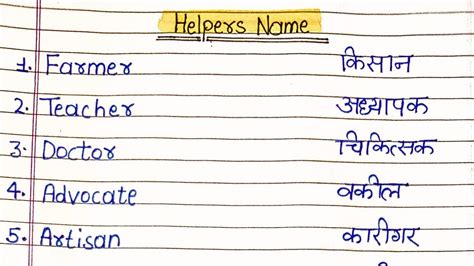 Helpers Name
1. Farmer किसान
2. Teacher अध्यापक
3. Doctor चिकित्सक
4. Advocate वकील
5. Artisan कारीगर